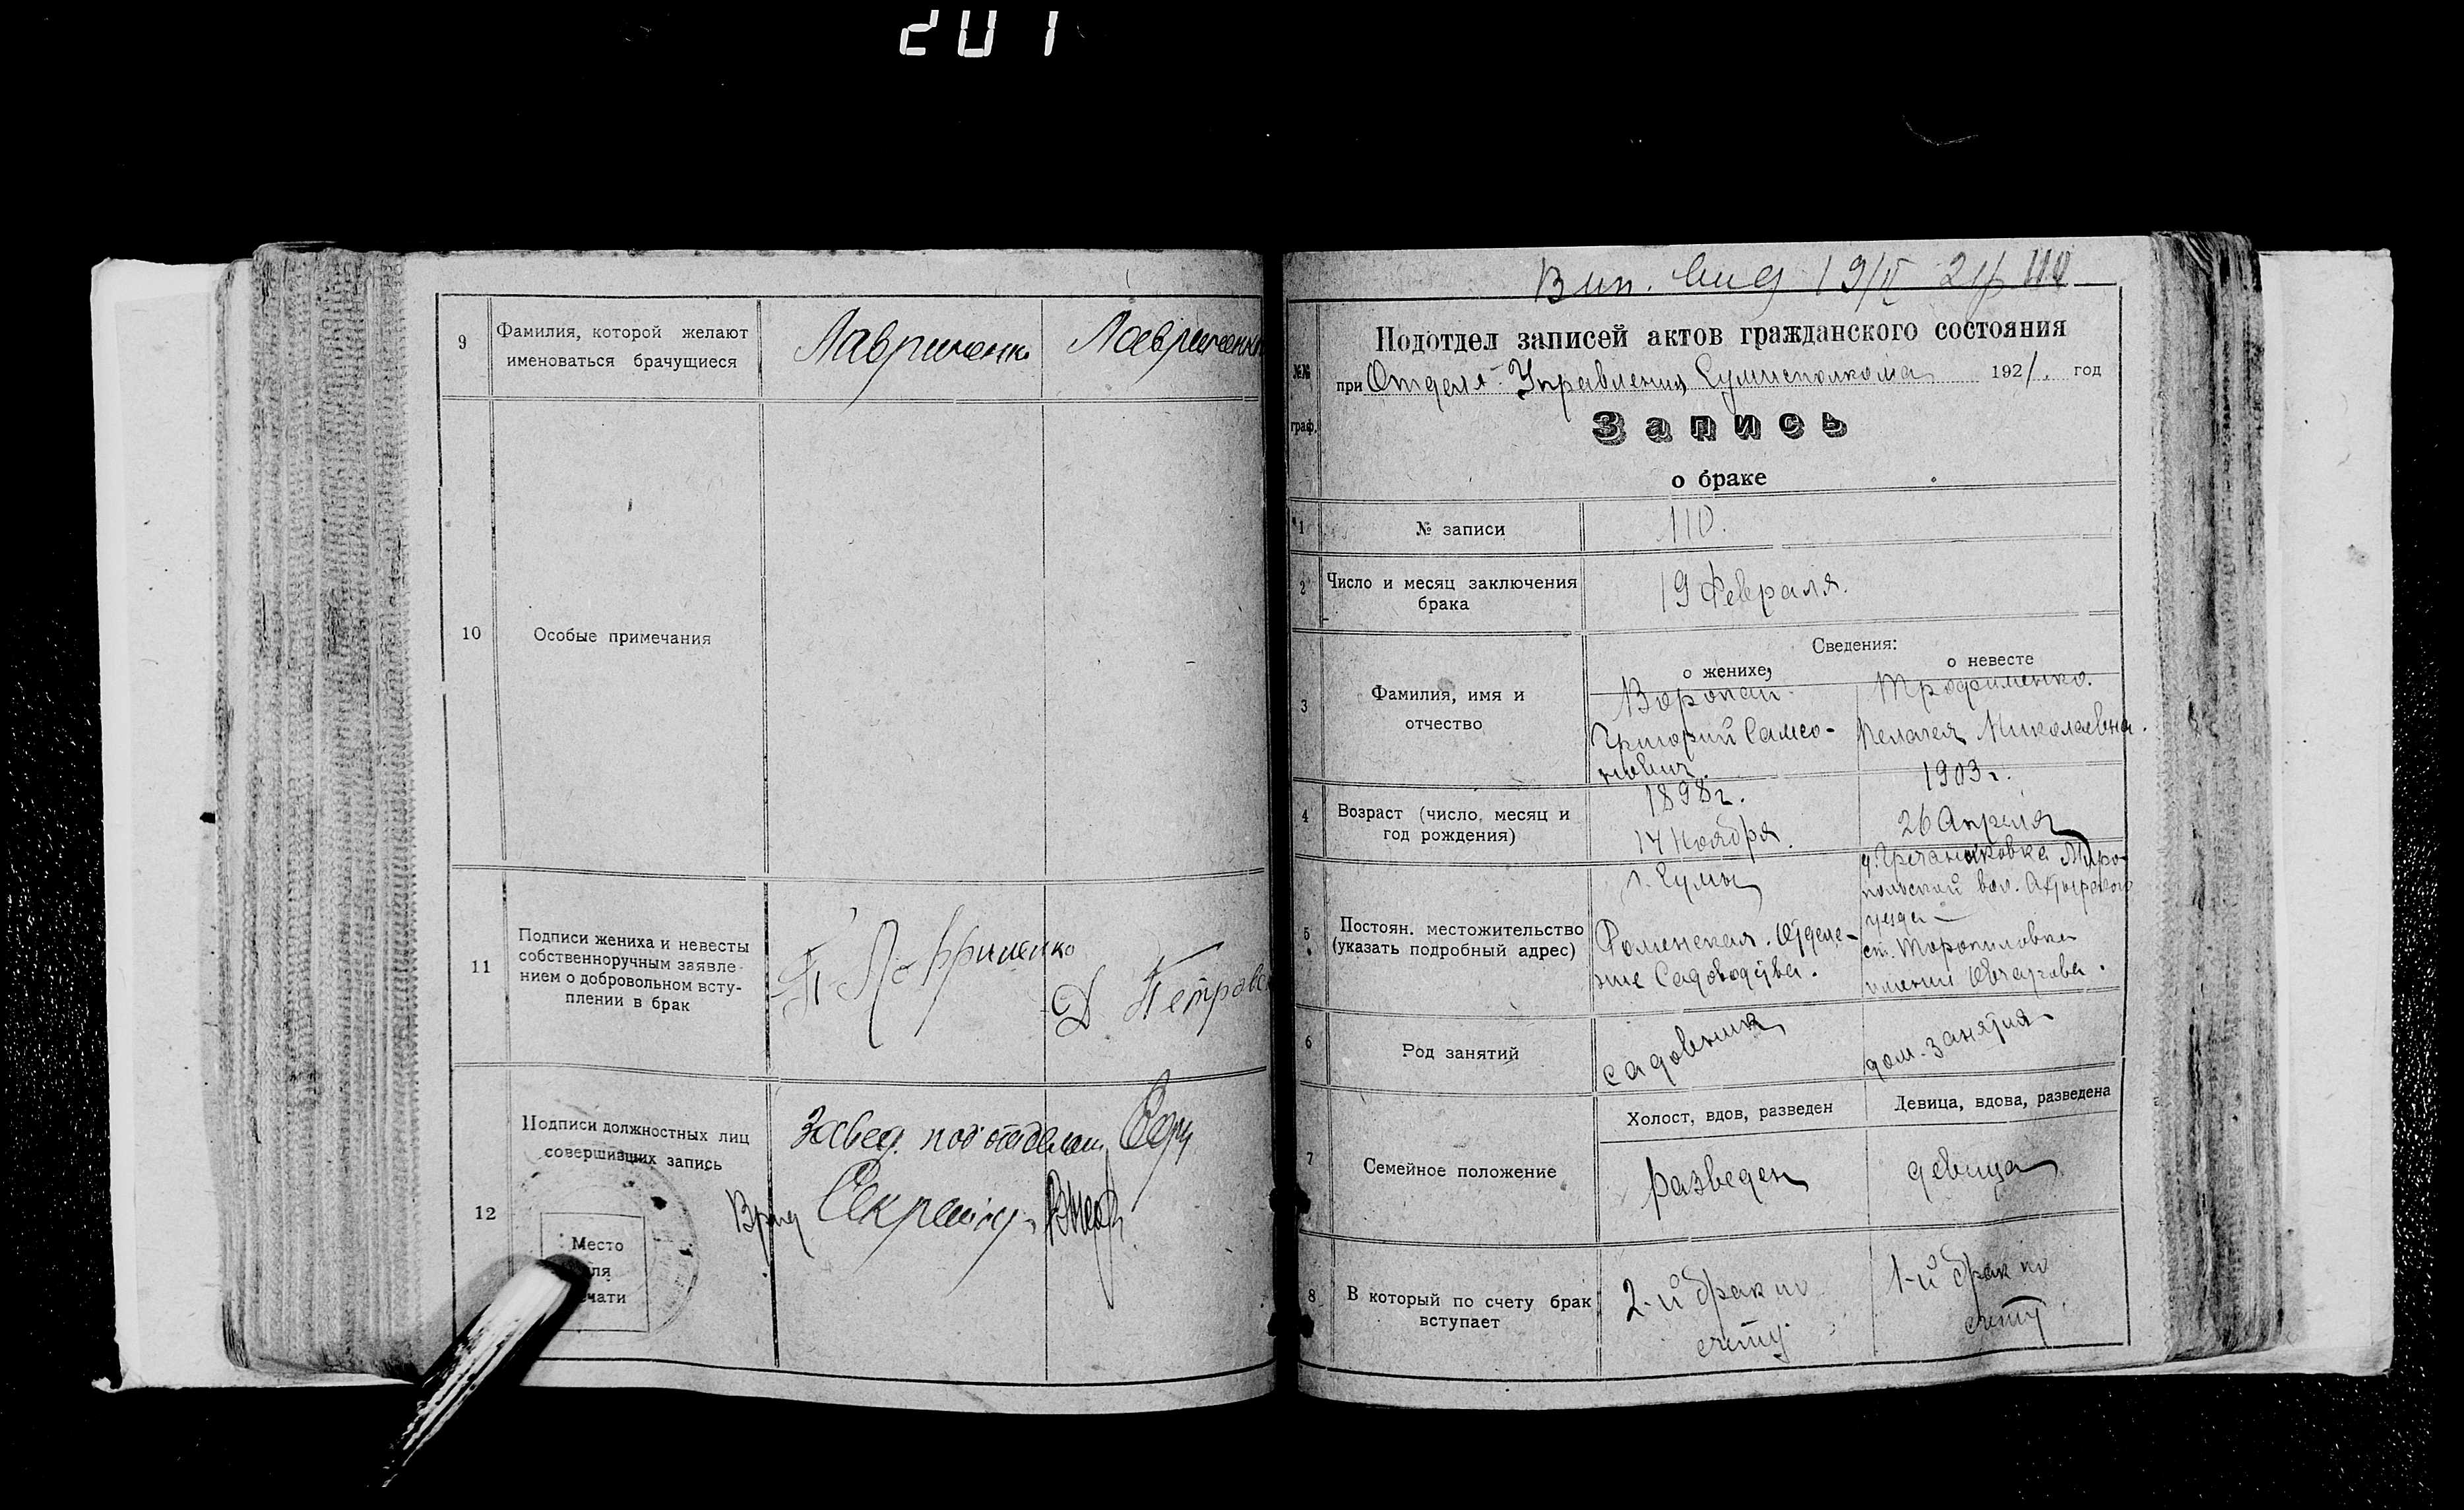 201
9
Фамилия, которой желают
именоваться брачущиеся
Лавриненко
Лавриненко
10
Особые примечания
11
Подписи жениха и невесты
собственноручным заявле-
нием о добровольном всту-
плении в брак
Лавриненко
Д Петровс
12
Подписи должностных лиц
совершивших запись
Завед. подотделом
Врид Секретаря
Место
ля
ечати
Вип. вид 19/II 21 р. 110
Подотдел записей актов гражданского состояния
№№
граф.
при Отделе Управления Сумисполкома 1921. год
Запись
о браке
1
№ записи
110.
2
Число и месяц заключения
брака
19 Февраля.
Сведения:
о женихе,
о невесте
3
Фамилия, имя и
отчество
Воропай
Григорий Самсо-
нович.
Трофименко.
Пелагея Николаевна.
4
Возраст (число, месяц и
год рождения)
1898 г.
14 Ноября.
1903 г.
26 Апреля
5
Постоян. местожительство
(указать подробный адрес)
г. Сумы
Роменская. Отделе-
ние Садоводства.
Миро-
польской вол. Ахтырского
уезда —
ст. Торопиловка
имение
6
Род занятий
садовник
дом. занятия
7
Семейное положение
Холост, вдов, разведен
Девица, вдова, разведена
разведен
девица
8
В который по счету брак
вступает
2-й брак по
счету
1-й брак по
счету